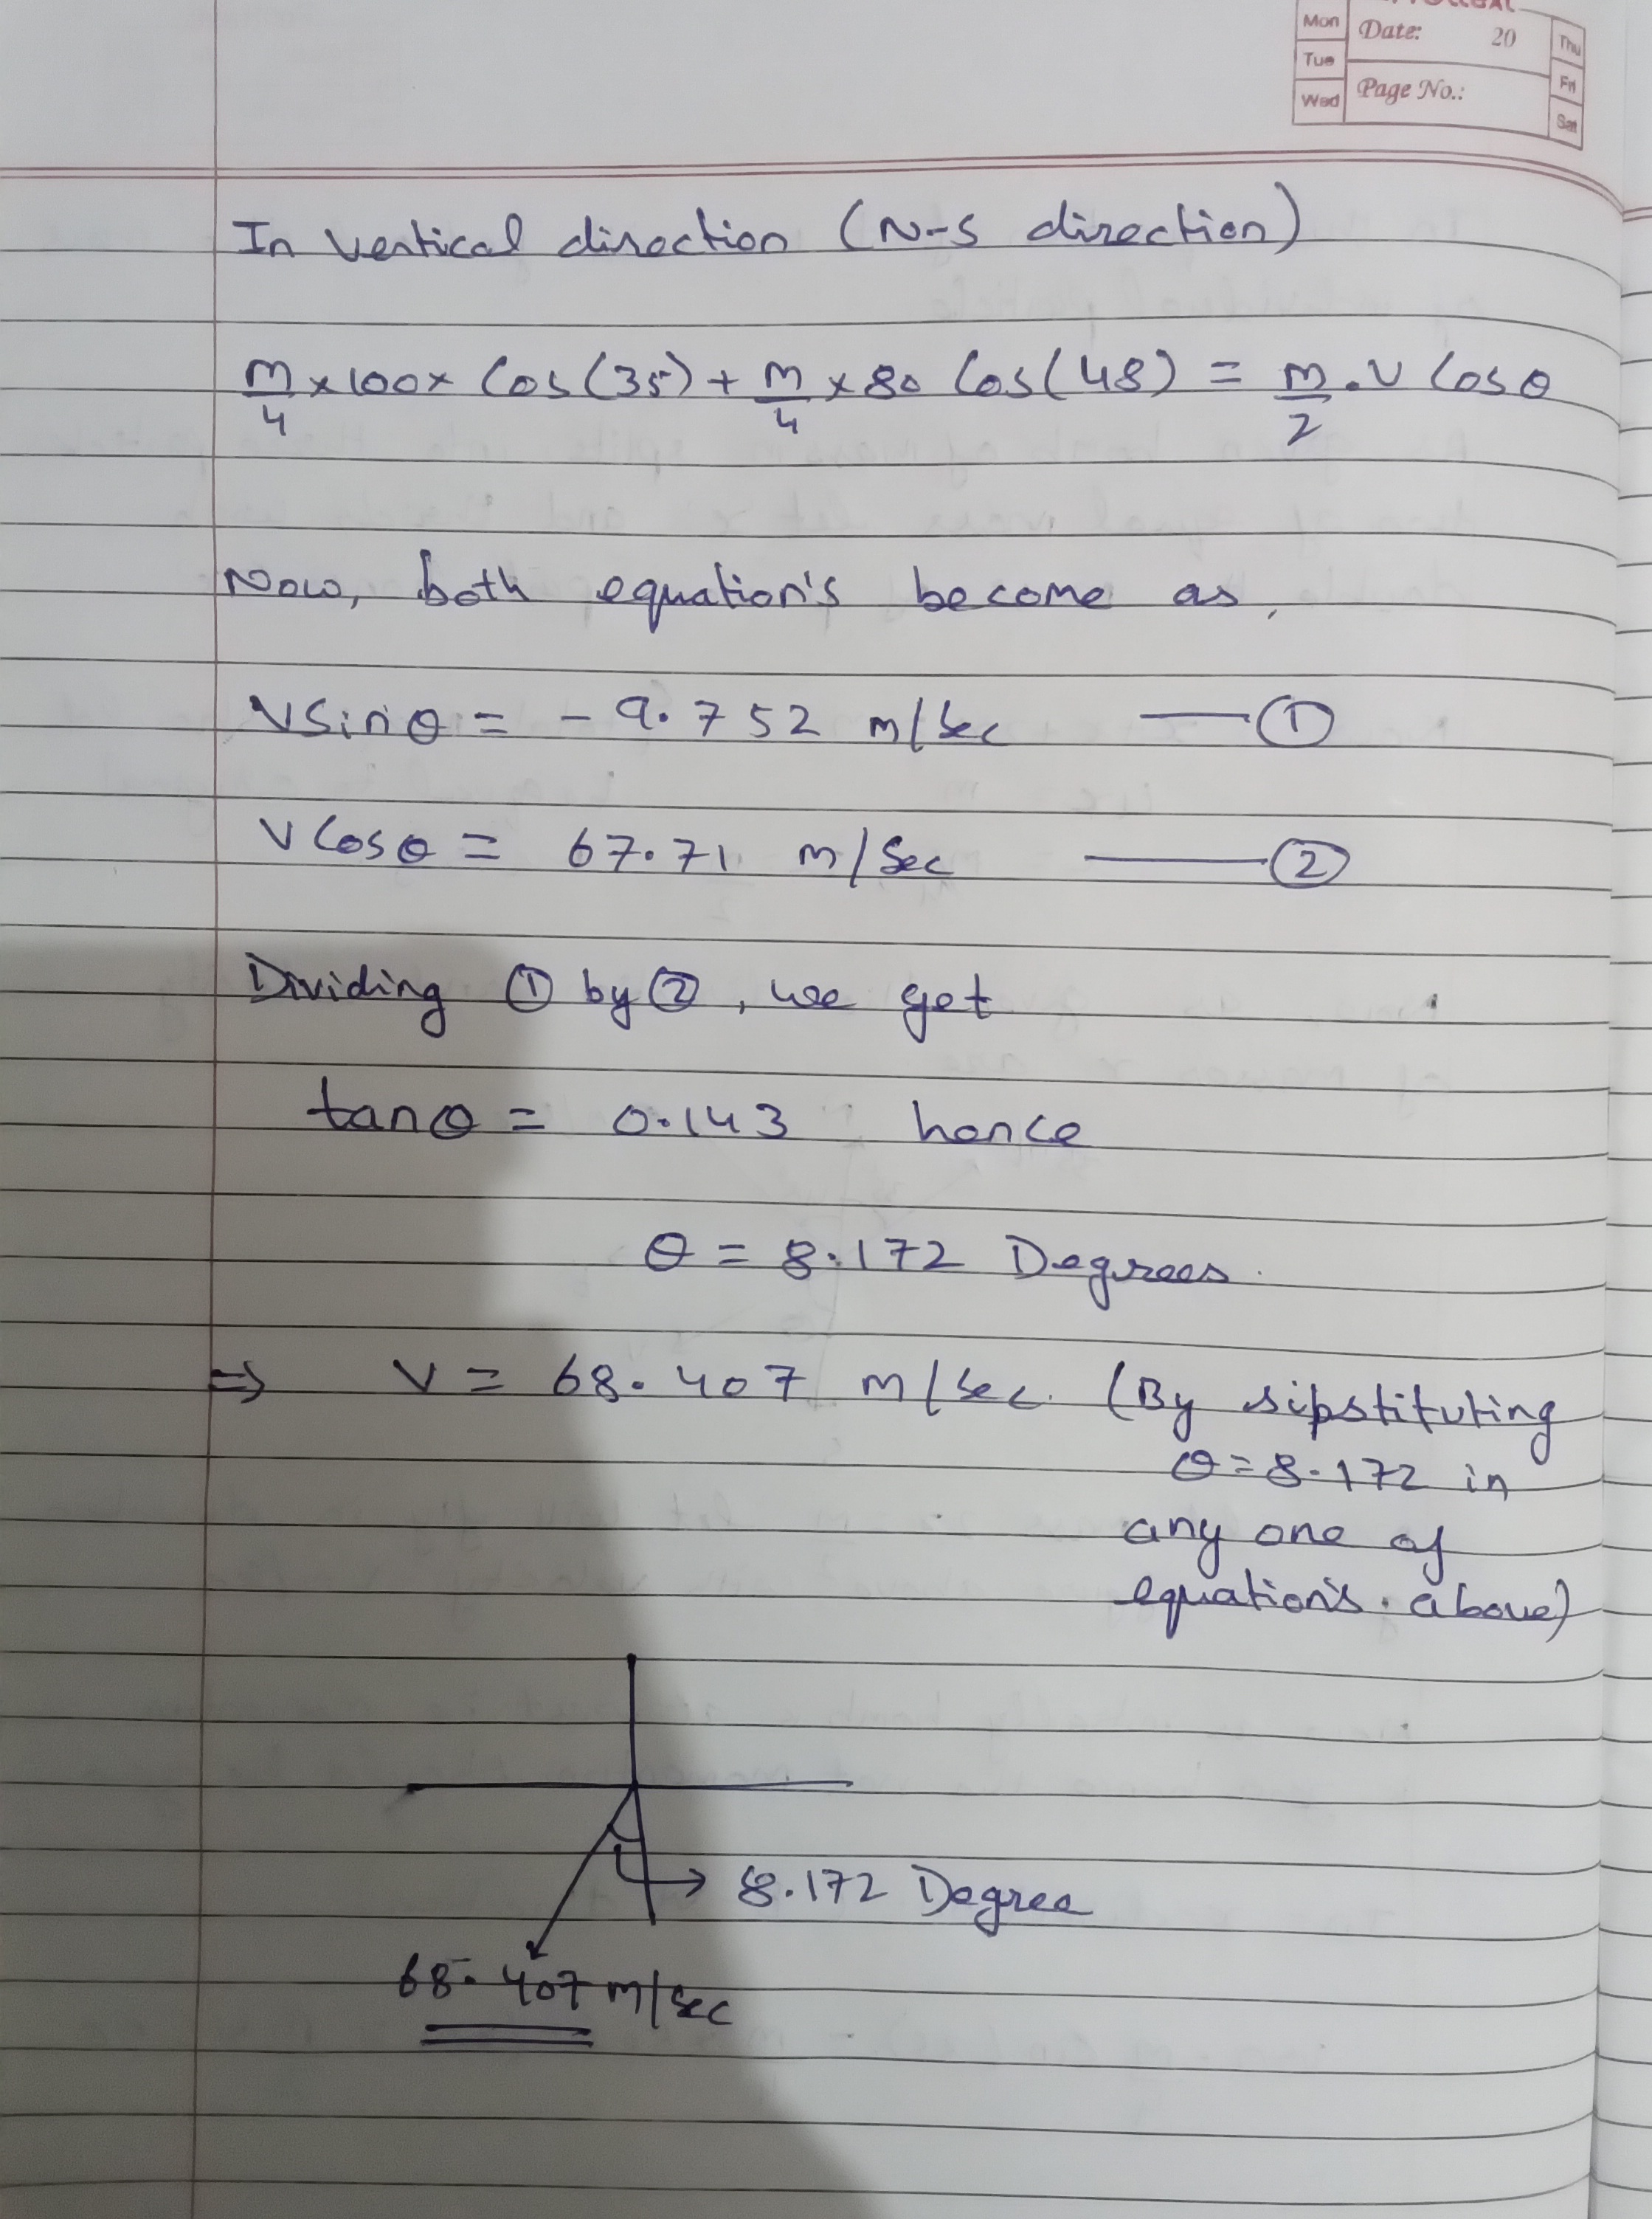 Mon
Tue
Wed
Date: 20
Page No.:
Thu
Fri
Sat
In vertical direction (N-S direction)
m/4 x 100 x Cos(35) + m/4 x 80 Cos(48) = m/2 . V Cosθ
Now, both equation's become as,
VSinθ = - 9.752 m/sec —— ①
VCosθ = 67.71 m/Sec —— ②
Dividing ① by ②, we get
tanθ = 0.143 hence
θ = 8.172 Degrees.
⇒ V = 68.407 m/sec. (By sipstituting
θ=8.172 in
any one of
equation's. above)
8.172 Degree
68.407 m/sec